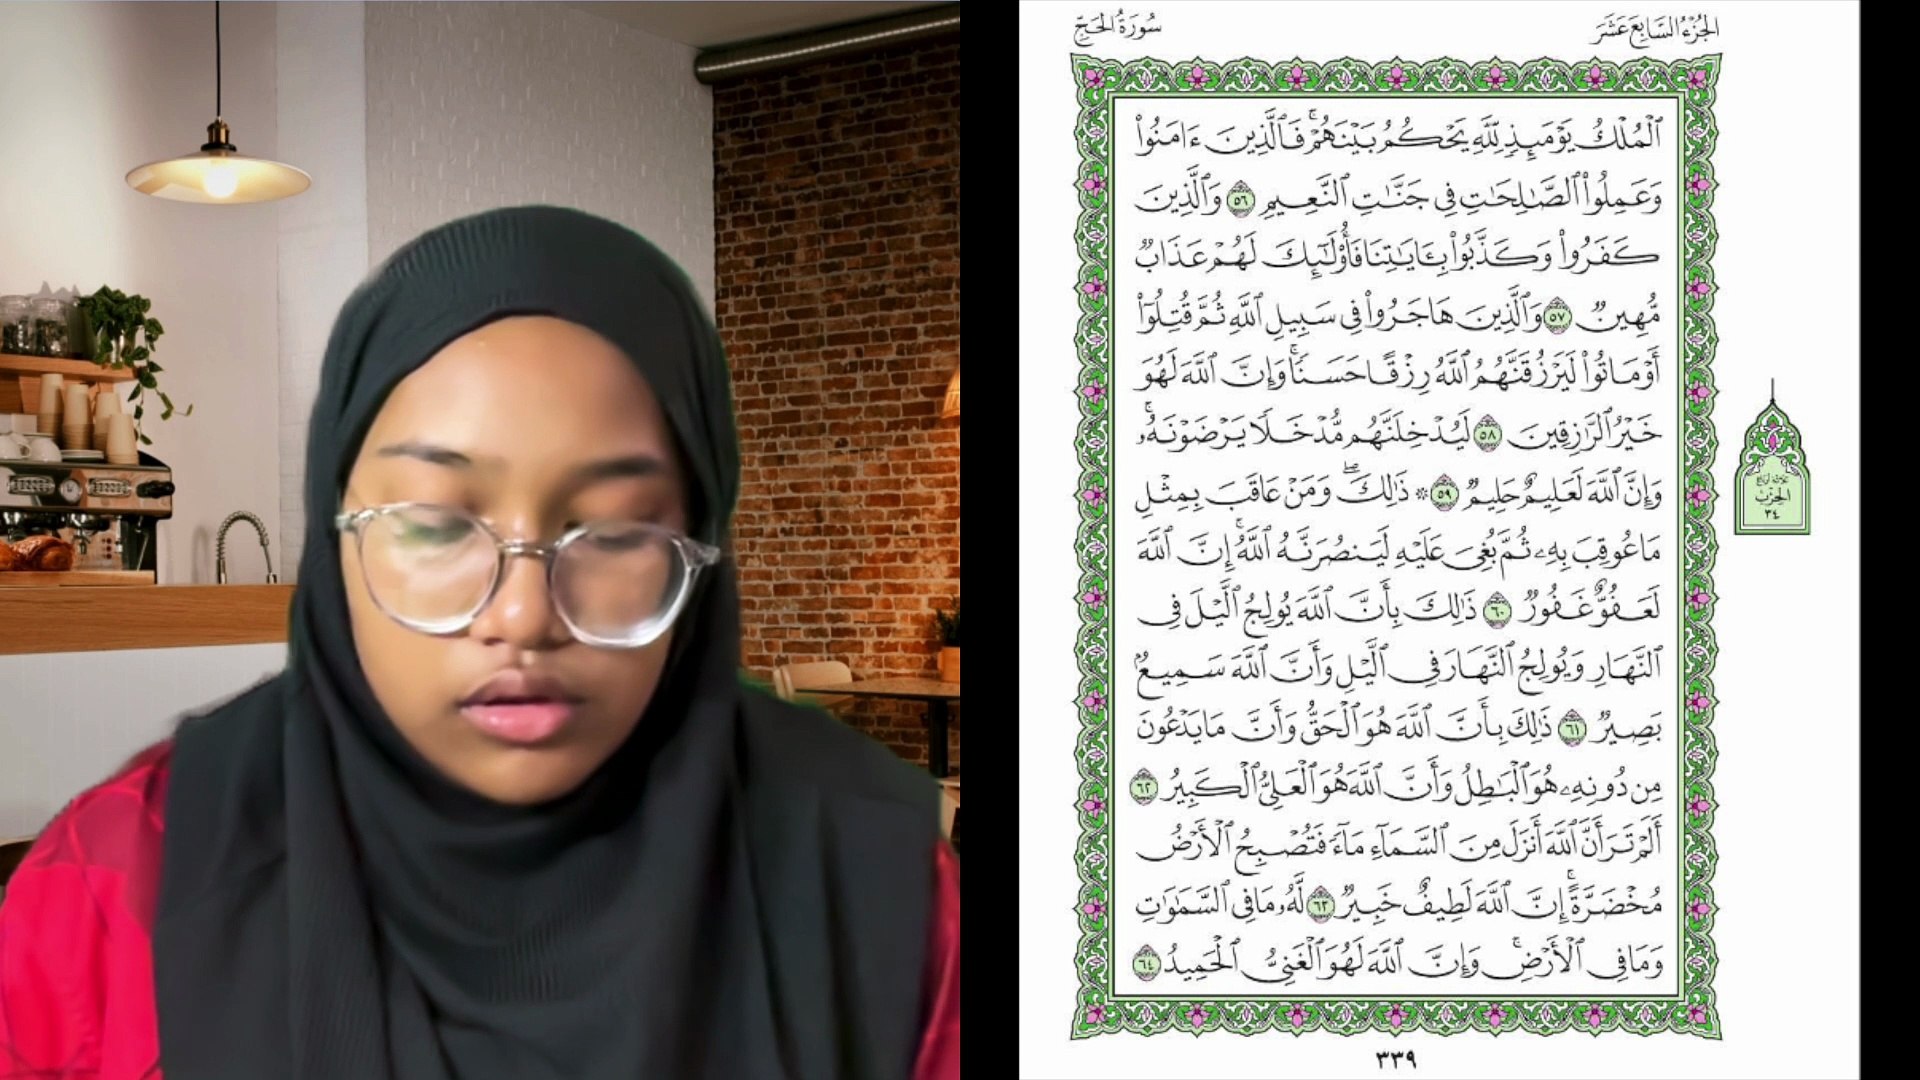 الجزء السابع عشر
سورة الحج
ٱلْمُلْكُ يَوْمَئِذٍ لِّلَّهِ يَحْكُمُ بَيْنَهُمْ ۚ فَٱلَّذِينَ ءَامَنُوا۟
وَعَمِلُوا۟ ٱلصَّـٰلِحَـٰتِ فِى جَنَّـٰتِ ٱلنَّعِيمِ ٥٦ وَٱلَّذِينَ
كَفَرُوا۟ وَكَذَّبُوا۟ بِـَٔايَـٰتِنَا فَأُو۟لَـٰٓئِكَ لَهُمْ عَذَابٌ
مُّهِينٌ ٥٧ وَٱلَّذِينَ هَاجَرُوا۟ فِى سَبِيلِ ٱللَّهِ ثُمَّ قُتِلُوٓا۟
أَوْ مَاتُوا۟ لَيَرْزُقَنَّهُمُ ٱللَّهُ رِزْقًا حَسَنًا ۚ وَإِنَّ ٱللَّهَ لَهُوَ
خَيْرُ ٱلرَّٰزِقِينَ ٥٨ لَيُدْخِلَنَّهُم مُّدْخَلًا يَرْضَوْنَهُۥ ۗ
وَإِنَّ ٱللَّهَ لَعَلِيمٌ حَلِيمٌ ٥٩ ۞ ذَٰلِكَ ۖ وَمَنْ عَاقَبَ بِمِثْلِ
مَا عُوقِبَ بِهِۦ ثُمَّ بُغِىَ عَلَيْهِ لَيَنصُرَنَّهُ ٱللَّهُ ۚ إِنَّ ٱللَّهَ
لَعَفُوٌّ غَفُورٌ ٦٠ ذَٰلِكَ بِأَنَّ ٱللَّهَ يُولِجُ ٱلَّيْلَ فِى
ٱلنَّهَارِ وَيُولِجُ ٱلنَّهَارَ فِى ٱلَّيْلِ وَأَنَّ ٱللَّهَ سَمِيعٌۢ
بَصِيرٌ ٦١ ذَٰلِكَ بِأَنَّ ٱللَّهَ هُوَ ٱلْحَقُّ وَأَنَّ مَا يَدْعُونَ
مِن دُونِهِۦ هُوَ ٱلْبَـٰطِلُ وَأَنَّ ٱللَّهَ هُوَ ٱلْعَلِىُّ ٱلْكَبِيرُ ٦٢
أَلَمْ تَرَ أَنَّ ٱللَّهَ أَنزَلَ مِنَ ٱلسَّمَآءِ مَآءً فَتُصْبِحُ ٱلْأَرْضُ
مُخْضَرَّةً ۗ إِنَّ ٱللَّهَ لَطِيفٌ خَبِيرٌ ٦٣ لَّهُۥ مَا فِى ٱلسَّمَـٰوَٰتِ
وَمَا فِى ٱلْأَرْضِ ۚ وَإِنَّ ٱللَّهَ لَهُوَ ٱلْغَنِىُّ ٱلْحَمِيدُ ٦٤
الحزب
٣٤
٣٣٩